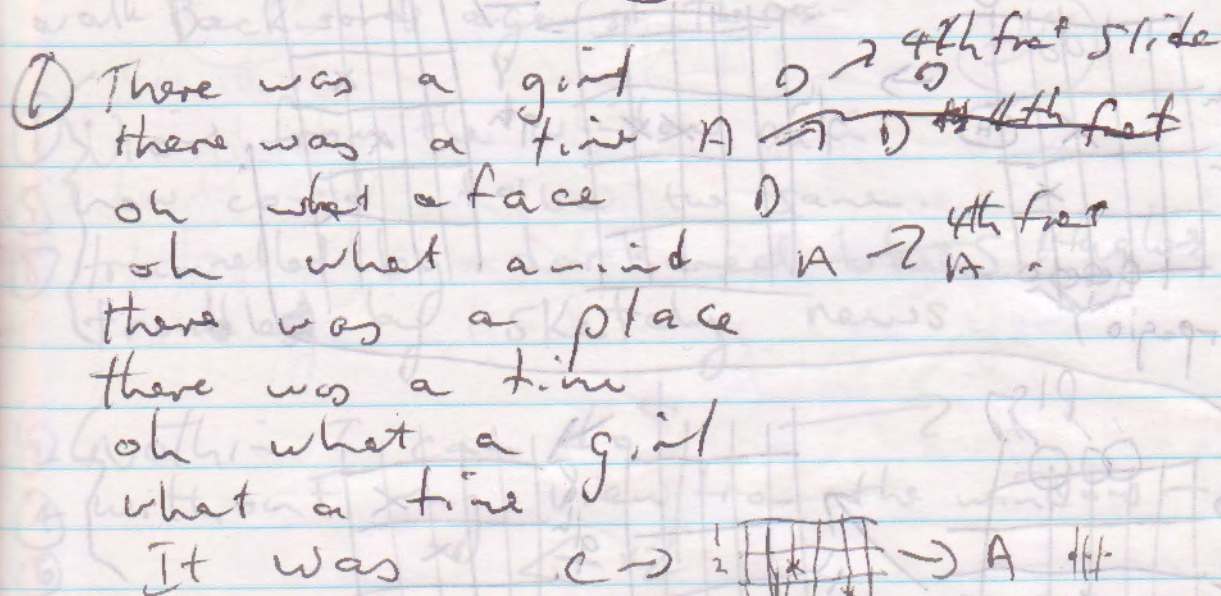 ① There was a girl D → D 4th fret slide
there was a time A → D
oh what a face D
oh what a mind A → A 4th fret
there was a place
there was a time
oh what a girl
what a time
It was C → 1 2 → A